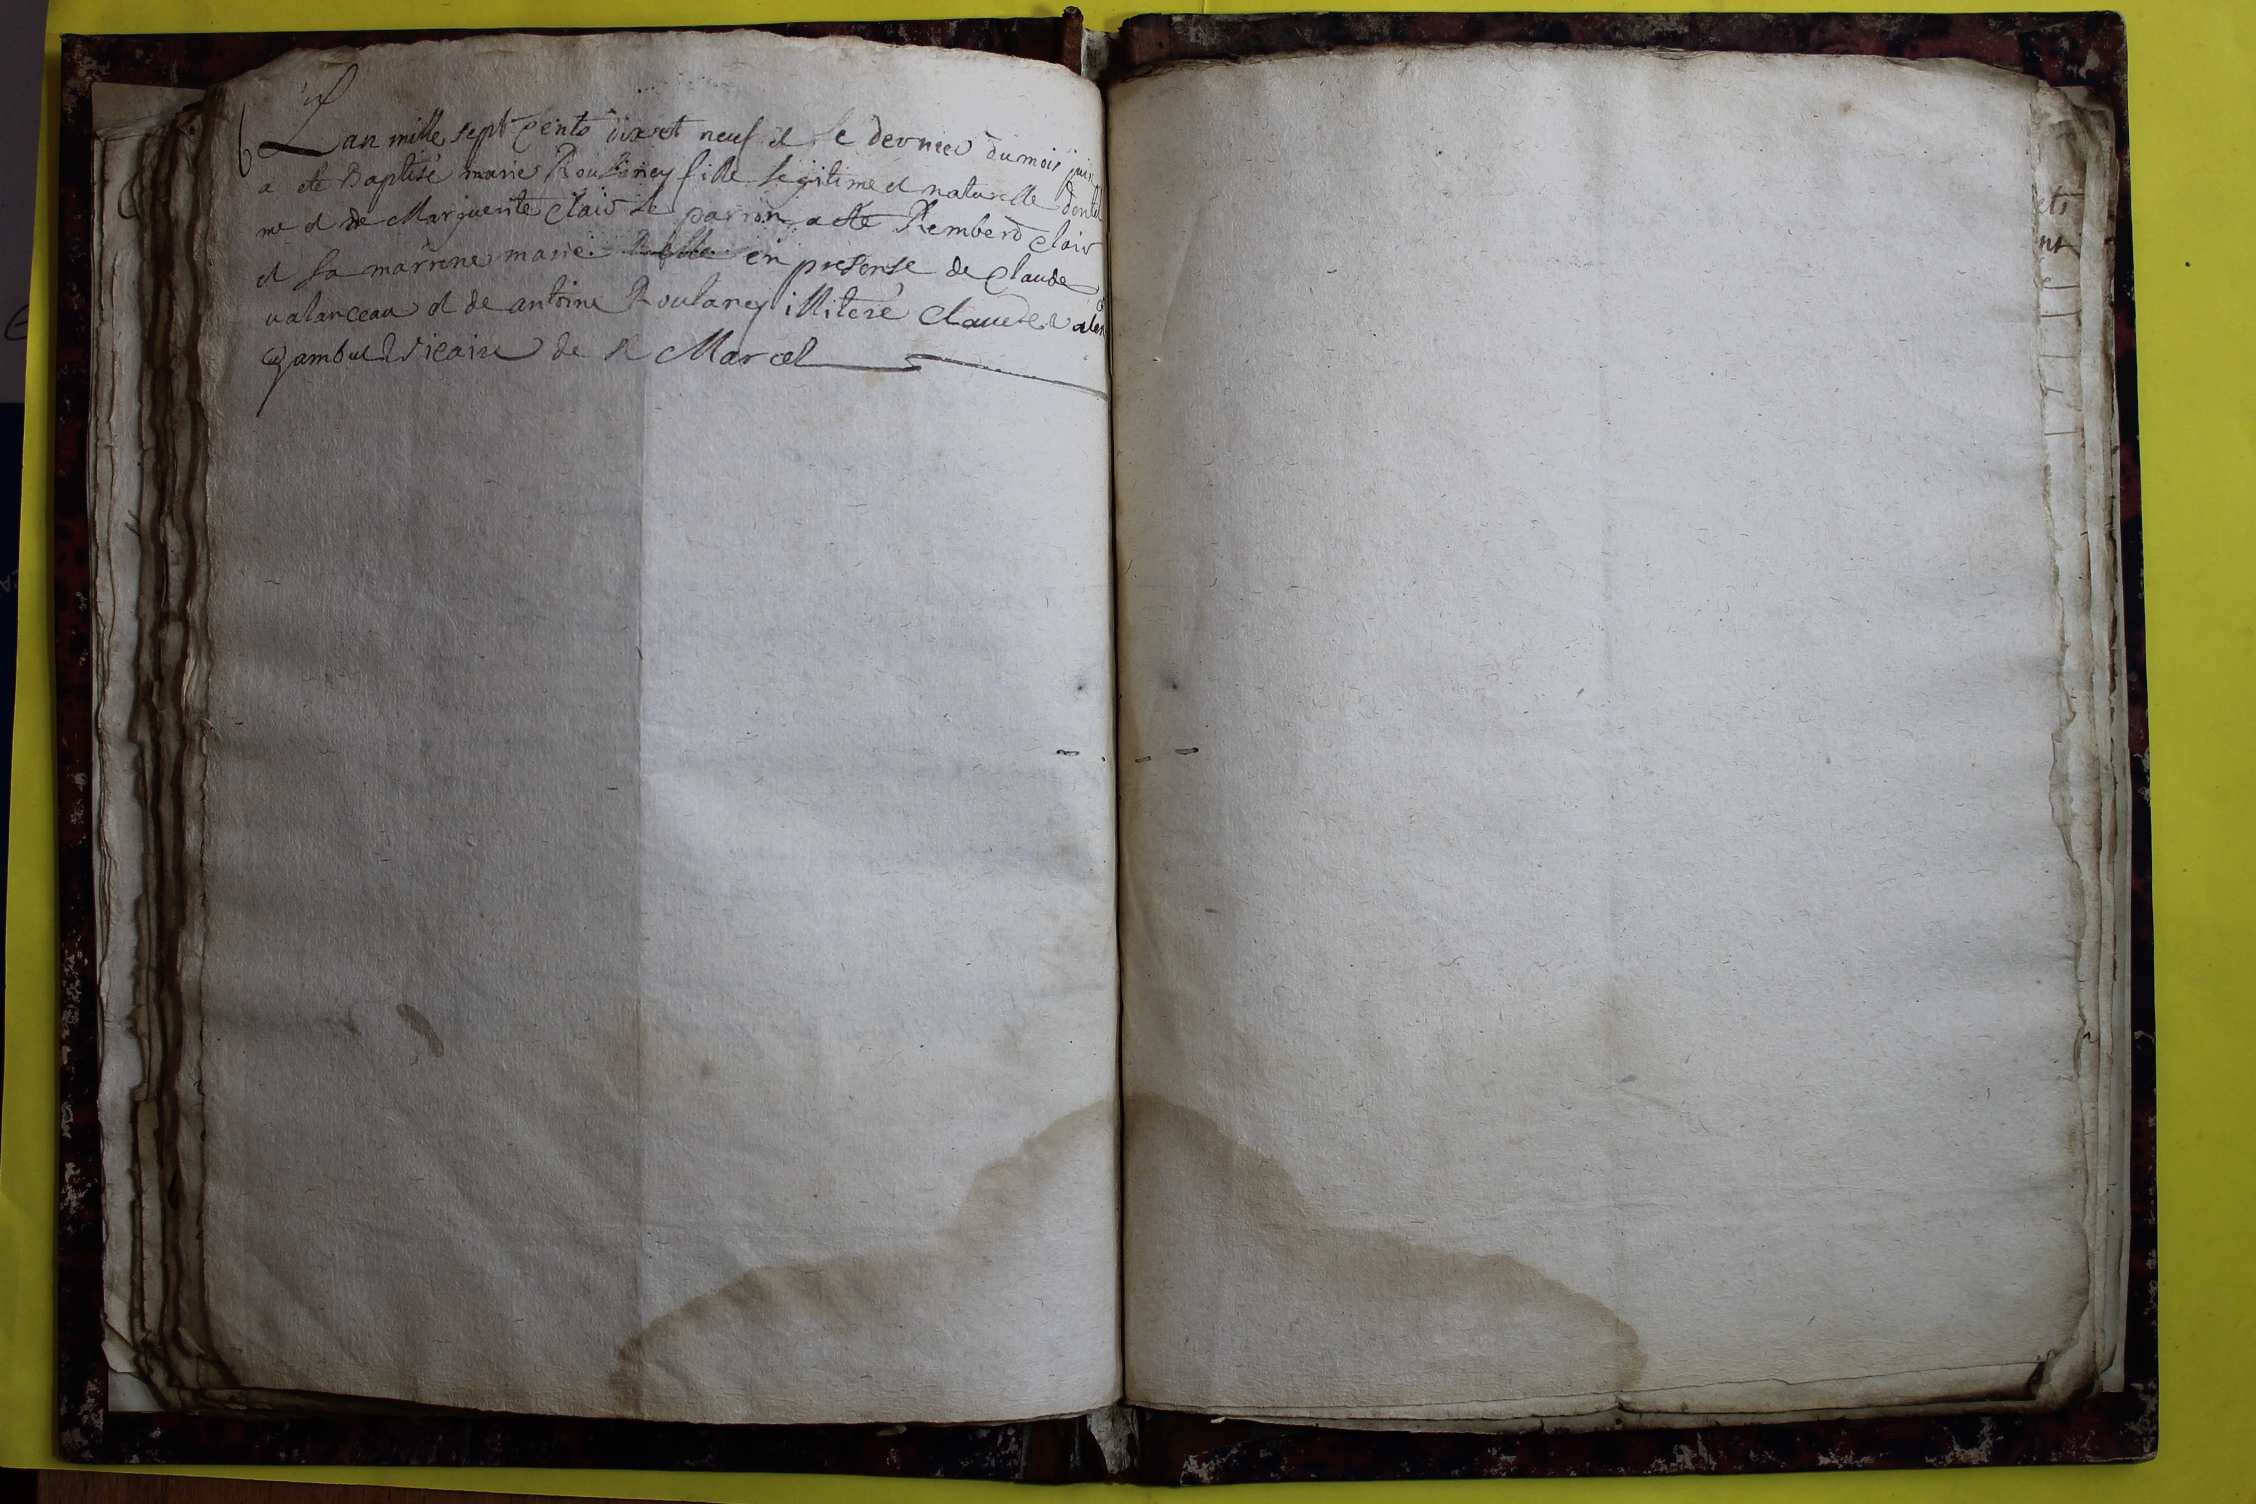 Lan mille sept cents dix et neuf et le dernier du mois juin
a ete Baptisé marie fille legitime et naturelle
me et de Marguerite clair le parrin a ete Rembert clair
et la marrene marie en presense de claude
valanceau et de antoine Roulancy illiteré claude valen
vicaire de st Marcel
ets
nt